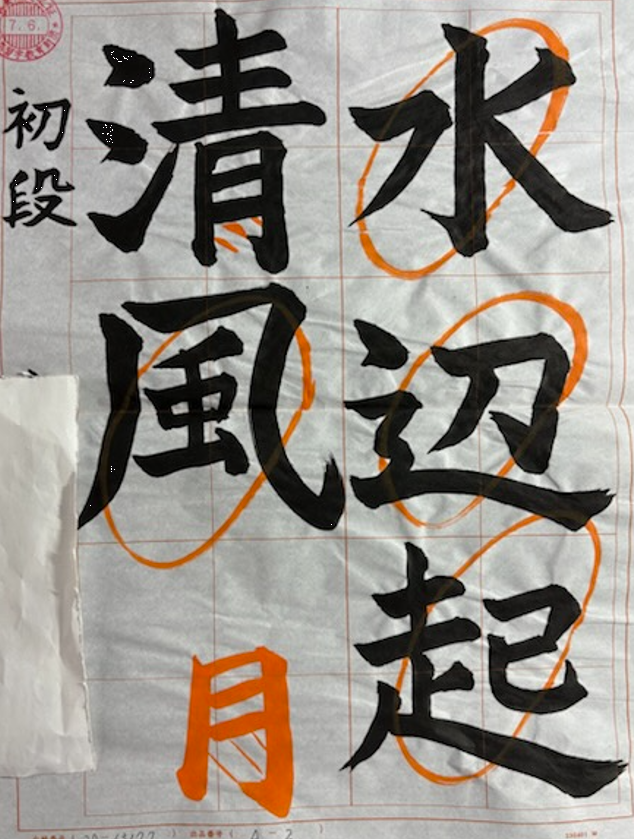 水辺起
清風
月
初段
7.6.